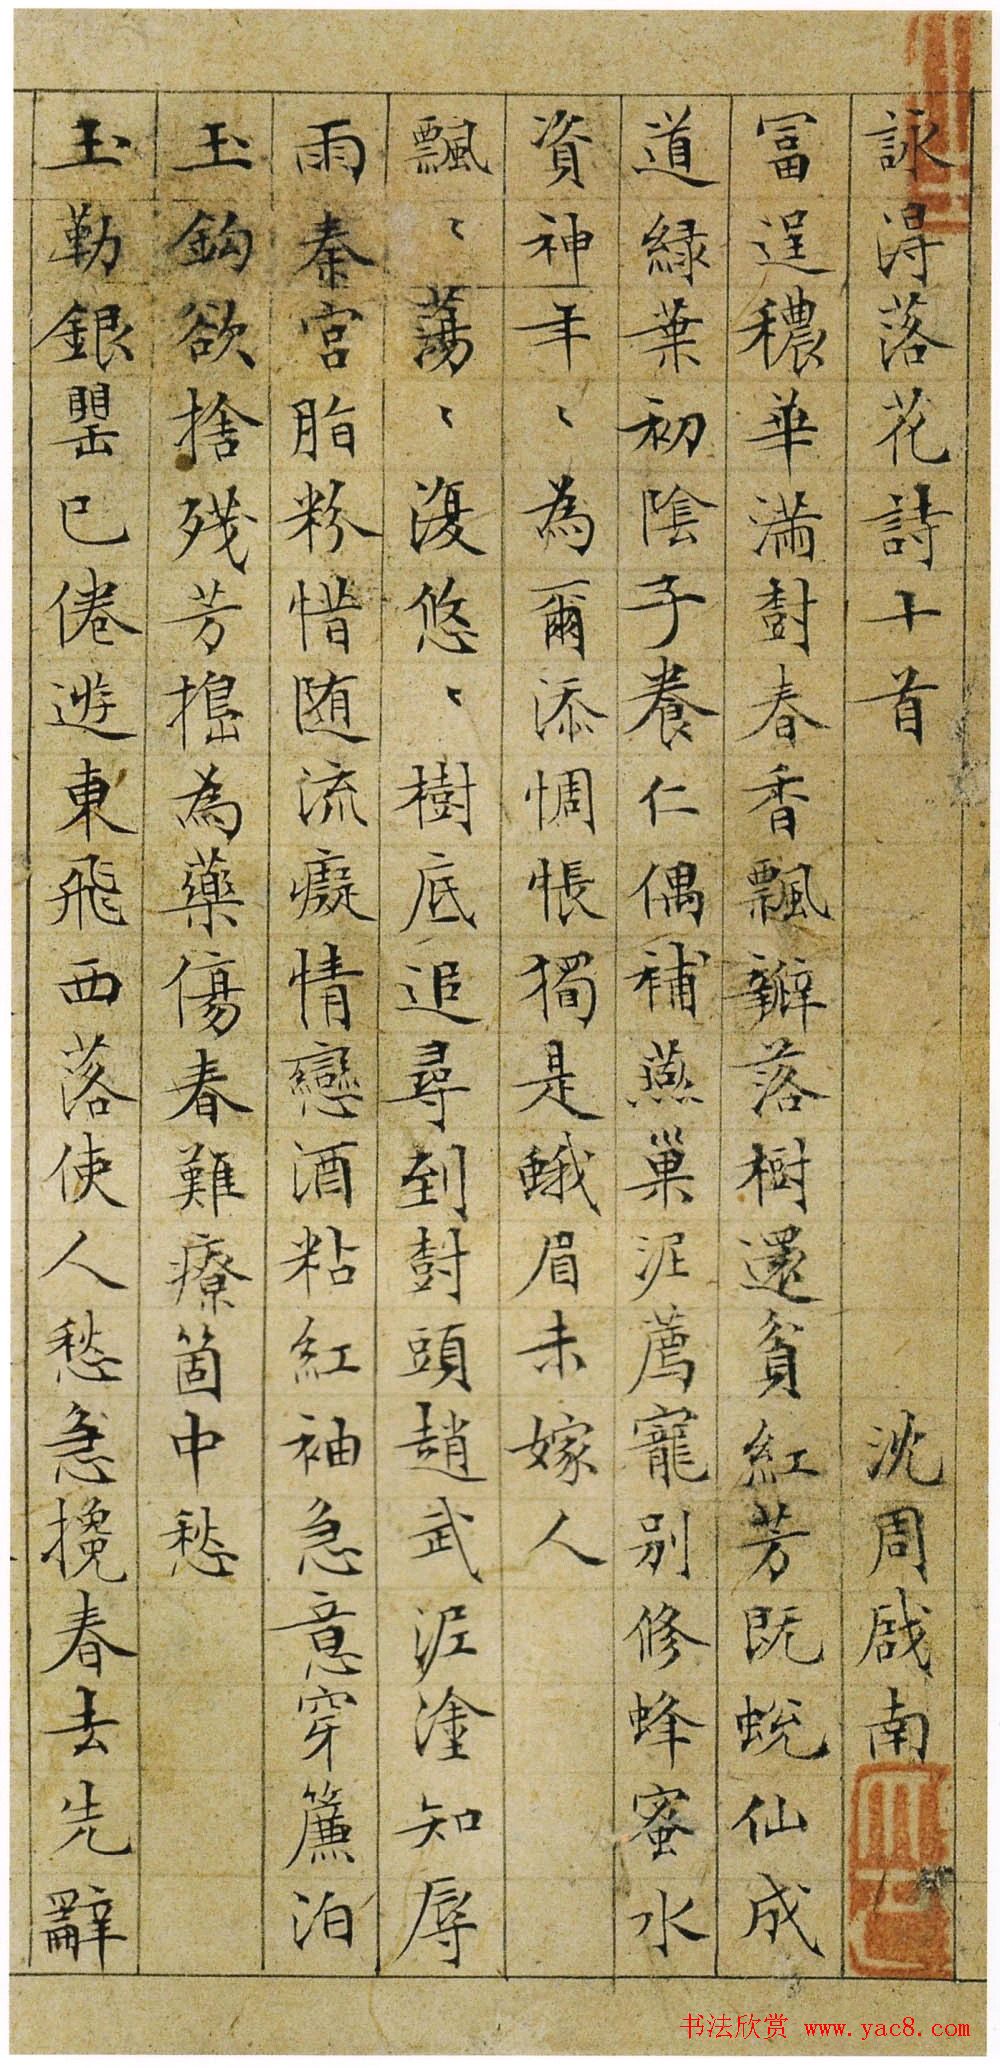 詠得落花詩十首 沈周啟南
冨逞穠華滿尌春香飄瓣落樹還貧紅芳既蛻仙成
道緑葉初陰子養仁偶補燕巢泥薦寵別修蜂蜜水
資神年〻為爾添惆悵獨是蛾眉未嫁人
飄〻蕩〻復悠〻樹底追尋到尌頭趙武泥塗知辱
雨秦宮脂粉惜随流癡情戀酒粘紅袖急意穿簾泊
玉鈎欲捨殘芳搗為藥傷春難療箇中愁
玉勒銀罌已倦遊東飛西落使人愁急攙春去先辭
书法欣赏 www.yac8.com